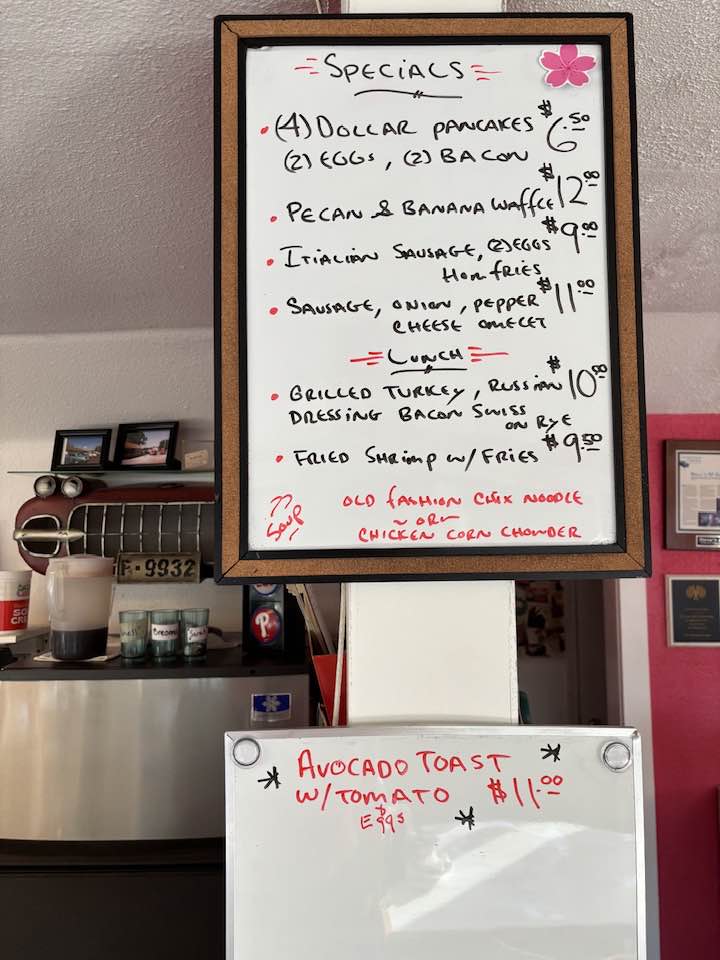 SPECIALS
• (4) DOLLAR PANCAKES $6.50
(2) EGGS, (2) BACON
• PECAN & BANANA WAFFLE $12.00
• ITIALIAN SAUSAGE, (2) EGGS $9.00
HOMFRIES
• SAUSAGE, ONION, PEPPER $11.00
CHEESE OMELET
LUNCH
• GRILLED TURKEY, RUSSIAN $10.00
DRESSING BACON SWISS
ON RYE
• FRIED SHRIMP W/ FRIES $9.50
SOUP
OLD FASHION CHIX NOODLE
~ OR ~
CHICKEN CORN CHOWDER
F-9932
P
* AVOCADO TOAST *
W/ TOMATO $11.00
& EGGS *